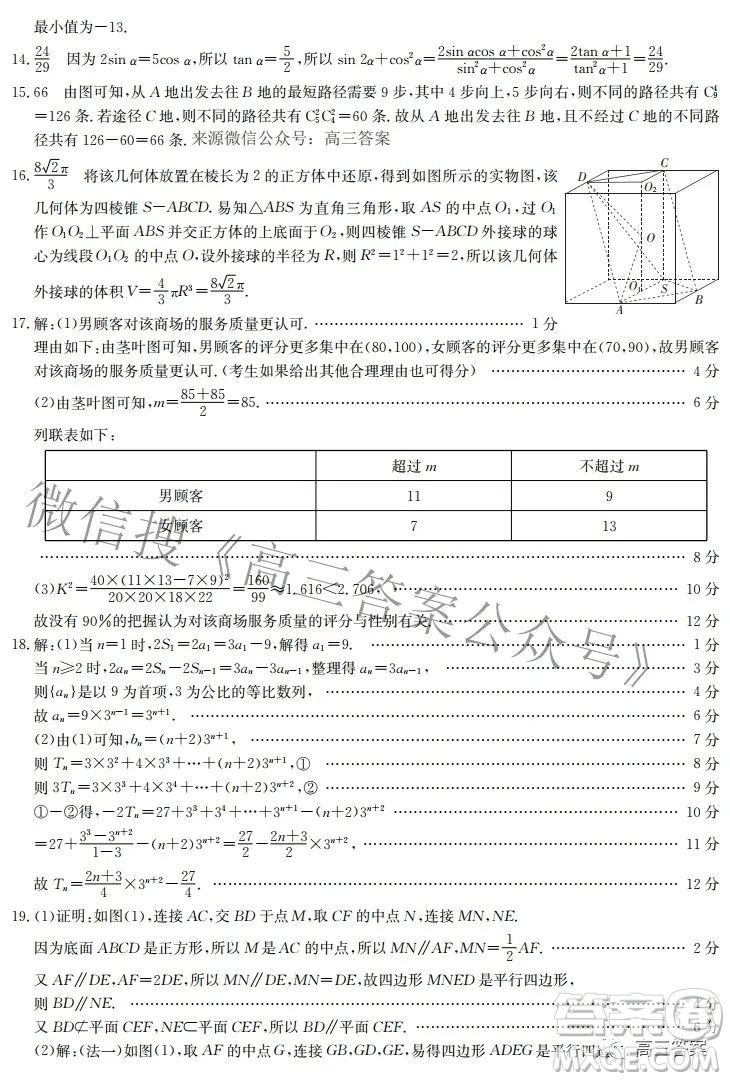 最小值为-13.
14. 24/29 因为2sin α=5cos α,所以 tan α=5/2,所以 sin 2α+cos²α=(2sin αcos α+cos²α)/(sin²α+cos²α)=(2tan α+1)/(tan²α+1)=24/29.
15.66 由图可知,从A地出发去往B地的最短路径需要9步,其中4步向上,5步向右,则不同的路径共有C₉⁴
=126条.若途径C地,则不同的路径共有C₅²C₄²=60条.故从A地出发去往B地,且不经过C地的不同路
径共有126-60=66条. 来源微信公众号:高三答案
16. 8√2π/3 将该几何体放置在棱长为2的正方体中还原,得到如图所示的实物图,该
几何体为四棱锥S-ABCD.易知△ABS为直角三角形,取AS的中点O₁,过O₁
作O₁O₂⊥平面ABS并交正方体的上底面于O₂,则四棱锥S-ABCD外接球的球
心为线段O₁O₂的中点O,设外接球的半径为R,则R²=1²+1²=2,所以该几何体
外接球的体积V=4/3πR³=8√2π/3.
D
C
O₂
O
O₁
S
A
B
17.解:(1)男顾客对该商场的服务质量更认可. …… 1分
理由如下:由茎叶图可知,男顾客的评分更多集中在(80,100),女顾客的评分更多集中在(70,90),故男顾客
对该商场的服务质量更认可.(考生如果给出其他合理理由也可得分) …… 4分
(2)由茎叶图可知,m=(85+85)/2=85. …… 6分
列联表如下:
超过m 不超过m
男顾客 11 9
女顾客 7 13
…… 8分
(3)K²=40×(11×13-7×9)²/(20×20×18×22)=160/99≈1.616<2.706, …… 10分
故没有90%的把握认为对该商场服务质量的评分与性别有关. …… 12分
18.解:(1)当n=1时,2S₁=2a₁=3a₁-9,解得a₁=9. …… 1分
当n≥2时,2aₙ=2Sₙ-2Sₙ₋₁=3aₙ-3aₙ₋₁,整理得aₙ=3aₙ₋₁, …… 3分
则{aₙ}是以9为首项,3为公比的等比数列, …… 4分
故aₙ=9×3ⁿ⁻¹=3ⁿ⁺¹. …… 6分
(2)由(1)可知,bₙ=(n+2)3ⁿ⁺¹, …… 7分
则Tₙ=3×3²+4×3³+…+(n+2)3ⁿ⁺¹,① …… 8分
则3Tₙ=3×3³+4×3⁴+…+(n+2)3ⁿ⁺²,② …… 9分
①-②得,-2Tₙ=27+3³+3⁴+…+3ⁿ⁺¹-(n+2)3ⁿ⁺² …… 10分
=27+(3³-3ⁿ⁺²)/(1-3)-(n+2)3ⁿ⁺²=27/2-(2n+3)/2×3ⁿ⁺², …… 11分
故Tₙ=(2n+3)/4×3ⁿ⁺²-27/4. …… 12分
19.(1)证明:如图(1),连接AC,交BD于点M,取CF的中点N,连接MN,NE.
因为底面ABCD是正方形,所以M是AC的中点,所以MN∥AF,MN=1/2AF. …… 2分
又AF∥DE,AF=2DE,所以MN∥DE,MN=DE,故四边形MNED是平行四边形,
则BD∥NE. …… 4分
又BD⊄平面CEF,NE⊂平面CEF,所以BD∥平面CEF. …… 6分
(2)解:(法一)如图(1),取AF的中点G,连接GB,GD,GE,易得四边形ADEG是平行四边
微信搜《高三答案公众号》
答案圈
高三答案